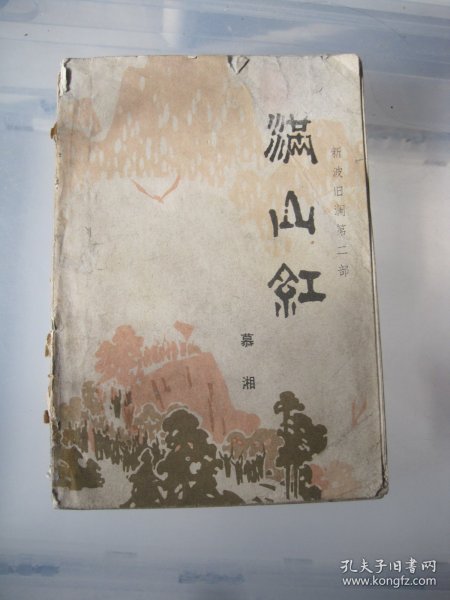 满山紅
新波旧澜第二部
慕湘
孔夫子旧书网
www.kongfz.com